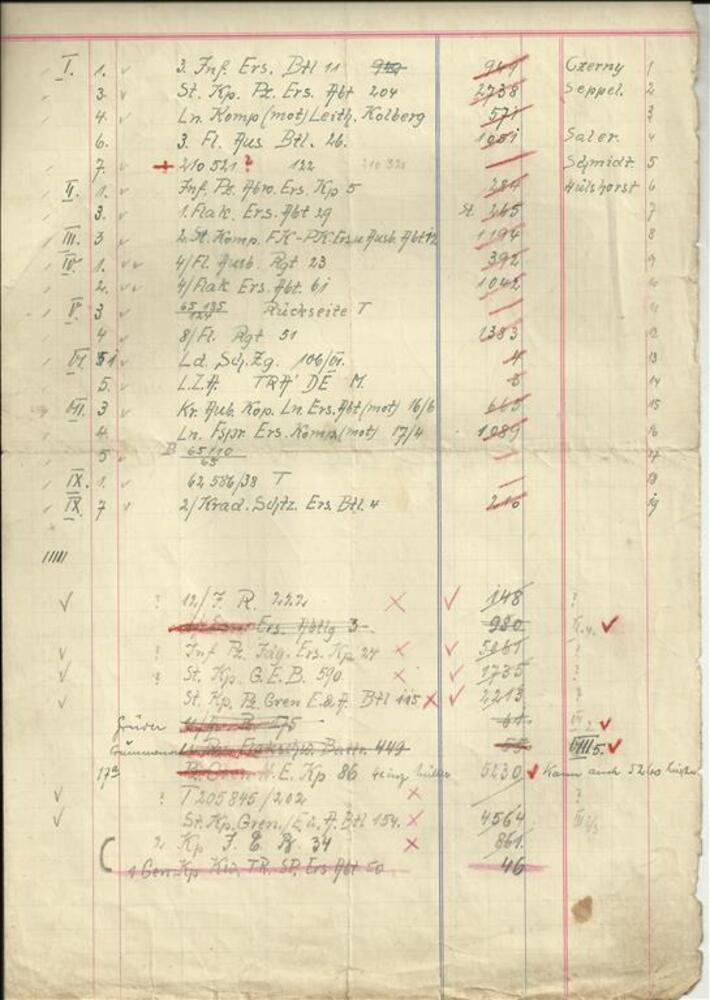 I. 1. 3. Inf. Ers. Btl 11 949 949 Czerny 1
3. St. Kp. Pz. Ers. Abt 204 2738 Seppel. 2
4. Ln. Komp (mot) Leith. Kolberg 571 3
6. 3. Fl. Aus Btl. 26. 1051 Saler. 4
7. + 210 521 ? 122 210 320 Schmidt 5
II. 1. Inf. Pz. Abw. Ers. Kp 5 284 Hülshorst 6
3. 1. Flak. Ers. Abt 29 St. 265 7
III. 3 2. St. Komp. FK-PK. Ers. u Ausb. Abt 12 1194 8
IV. 1. 4/Fl. Ausb. Rgt 23 392 9
2. 4/Flak Ers. Abt. 61 1042
V. 3 65 135 Rückseite T 11
4 8/Fl. Rgt 51 1383 12
VI. 51 Ld. Sch. Zg. 106/VI. 4 13
5. L.Z.A. TRA' DE M. 5 14
VII. 3 Kr. Aub. Kop. Ln. Ers. Abt (mot) 16/6 665 15
4. Ln. Fspr. Ers. Komp (mot) 17/4 1089 16
5 B 65110 17
65
IX. 1. 62 586/38 T 18
IX. 7 2/Krad. Schtz. Ers. Btl. 4 216 19
12/J. R. 222 148 ?
Ers. Abtlg 3 980
? Inf. Pz. Jäg. Ers. Kp 27 5061 ?
? St. Kp. G.E.B. 590 1735 ?
St. Kp. Pz. Gren E.&A. Btl 115 2213 ?
175 61
Battr. 449 55 VIII 5.
17a E. Kp 86 5230 Kann auch 5260
? T 205845/202 ?
St. Kp. Gren./E.u.A. Btl 154. 4564
2. Kp J. E. B. 34 861.
1 Gen. Kp Kw. TR. SP. Ers Abt 50 46